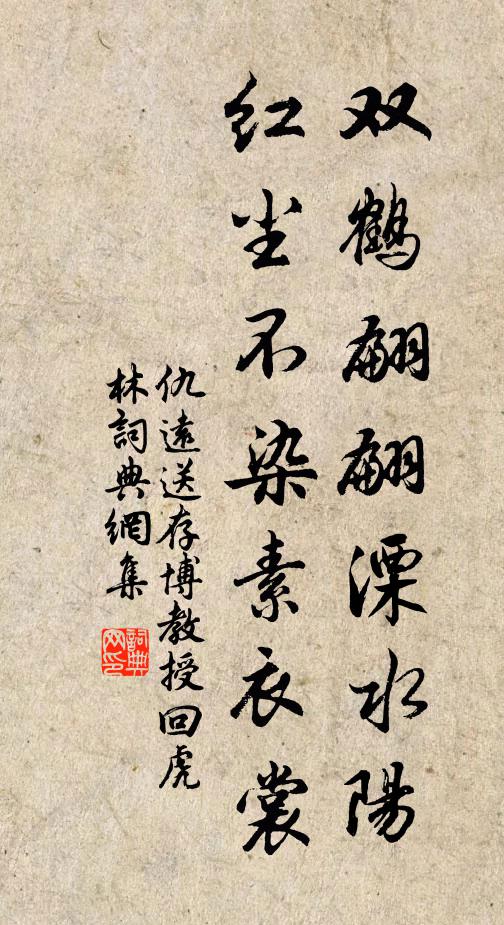 双鹤翩翩溧水陽
红尘不染素衣裳
仇遠送存博教授回虎
林詞典網集
詞典网印